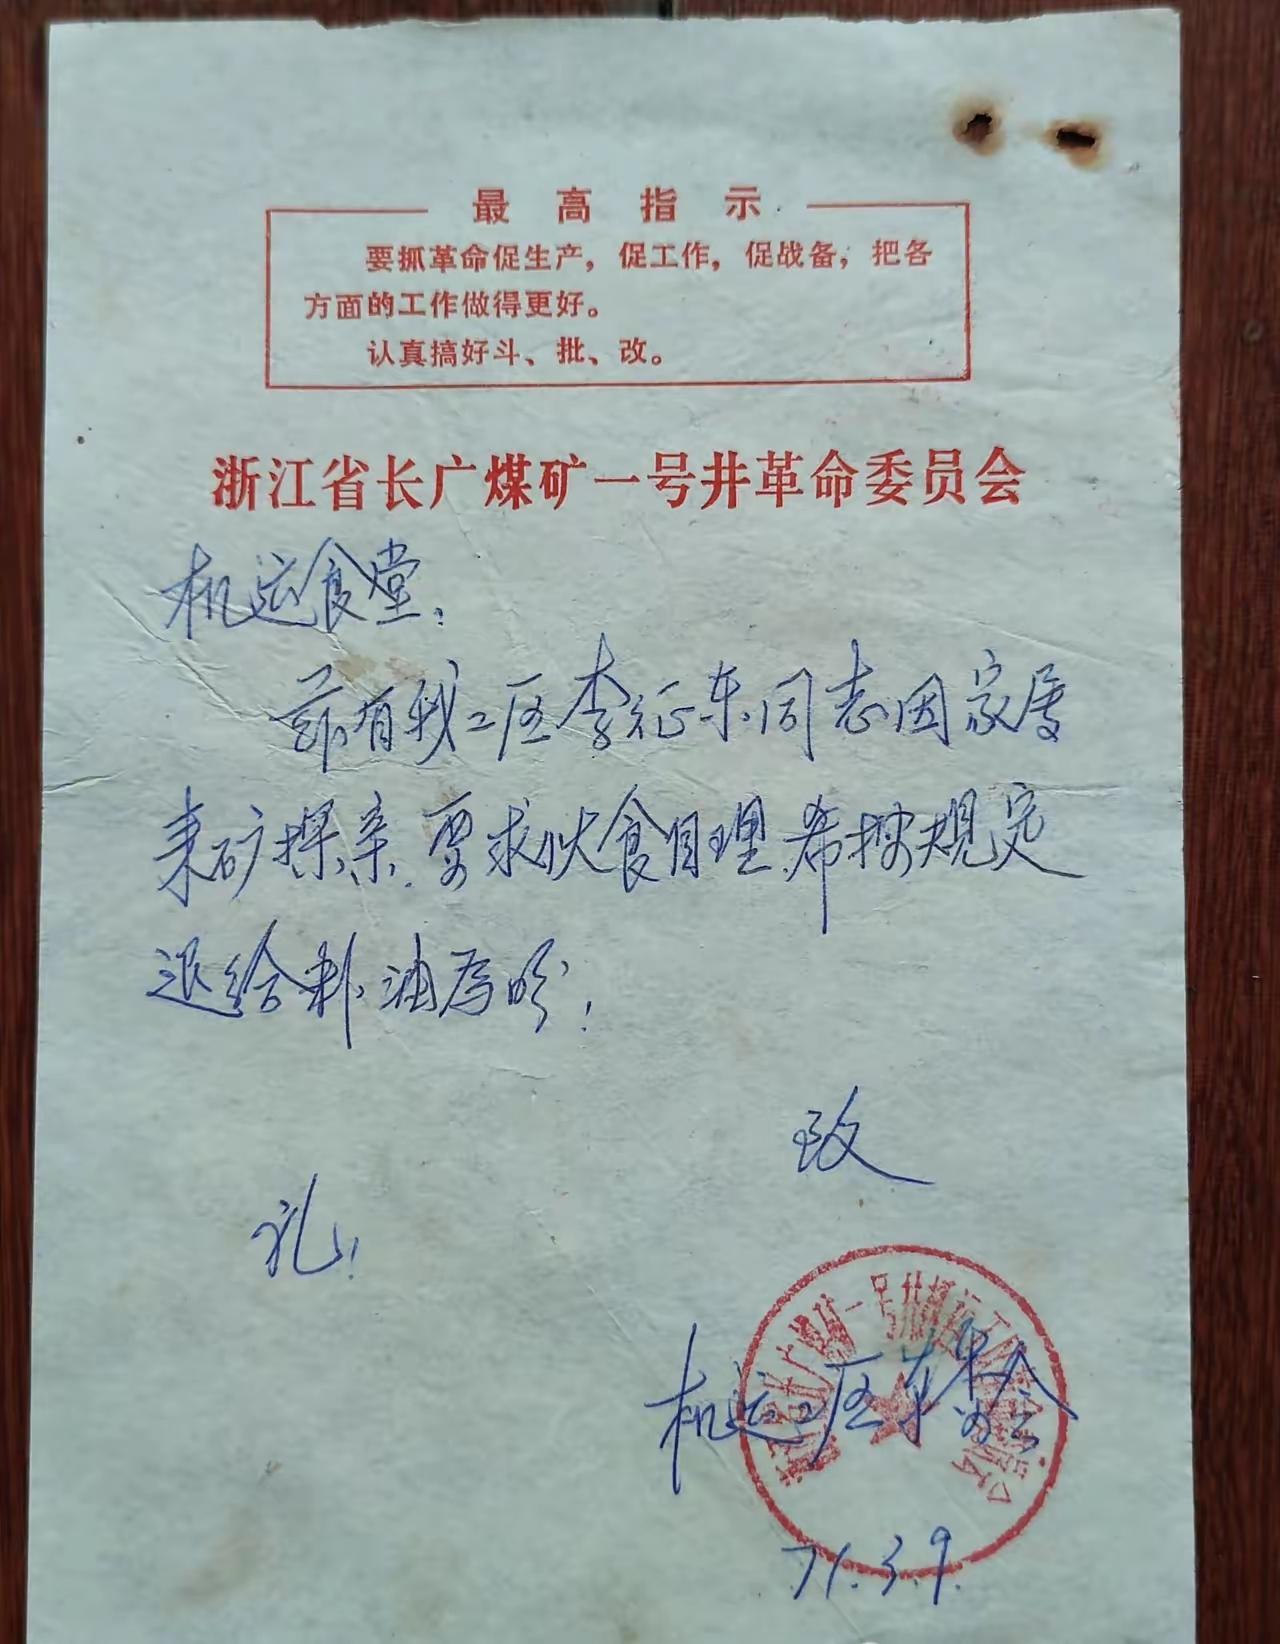 最高指示
要抓革命促生产，促工作，促战备，把各
方面的工作做得更好。
认真搞好斗、批、改。
浙江省长广煤矿一号井革命委员会
机运食堂：
兹有我工区李征东同志因家属
来矿探亲.要求伙食自理.希按规定
退给粮油为盼！
致
礼！
机运工区革委会
71.3.9.